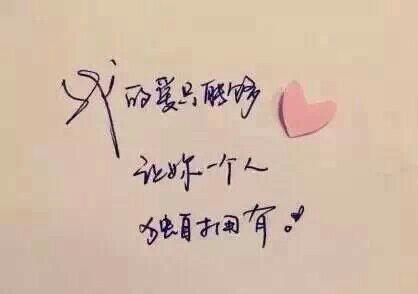 我的爱只能够
让妳一个人
独自拥有。